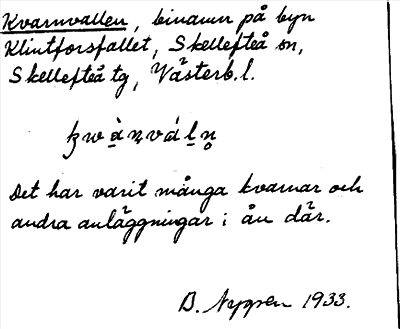 Kvarnvallen, binamn på byn
Klintforsfallet, Skellefteå sn,
Skellefteå tg, Västerb. l.
Det har varit många kvarnar och
andra anläggningar i ån där.
B. Nygren 1933.